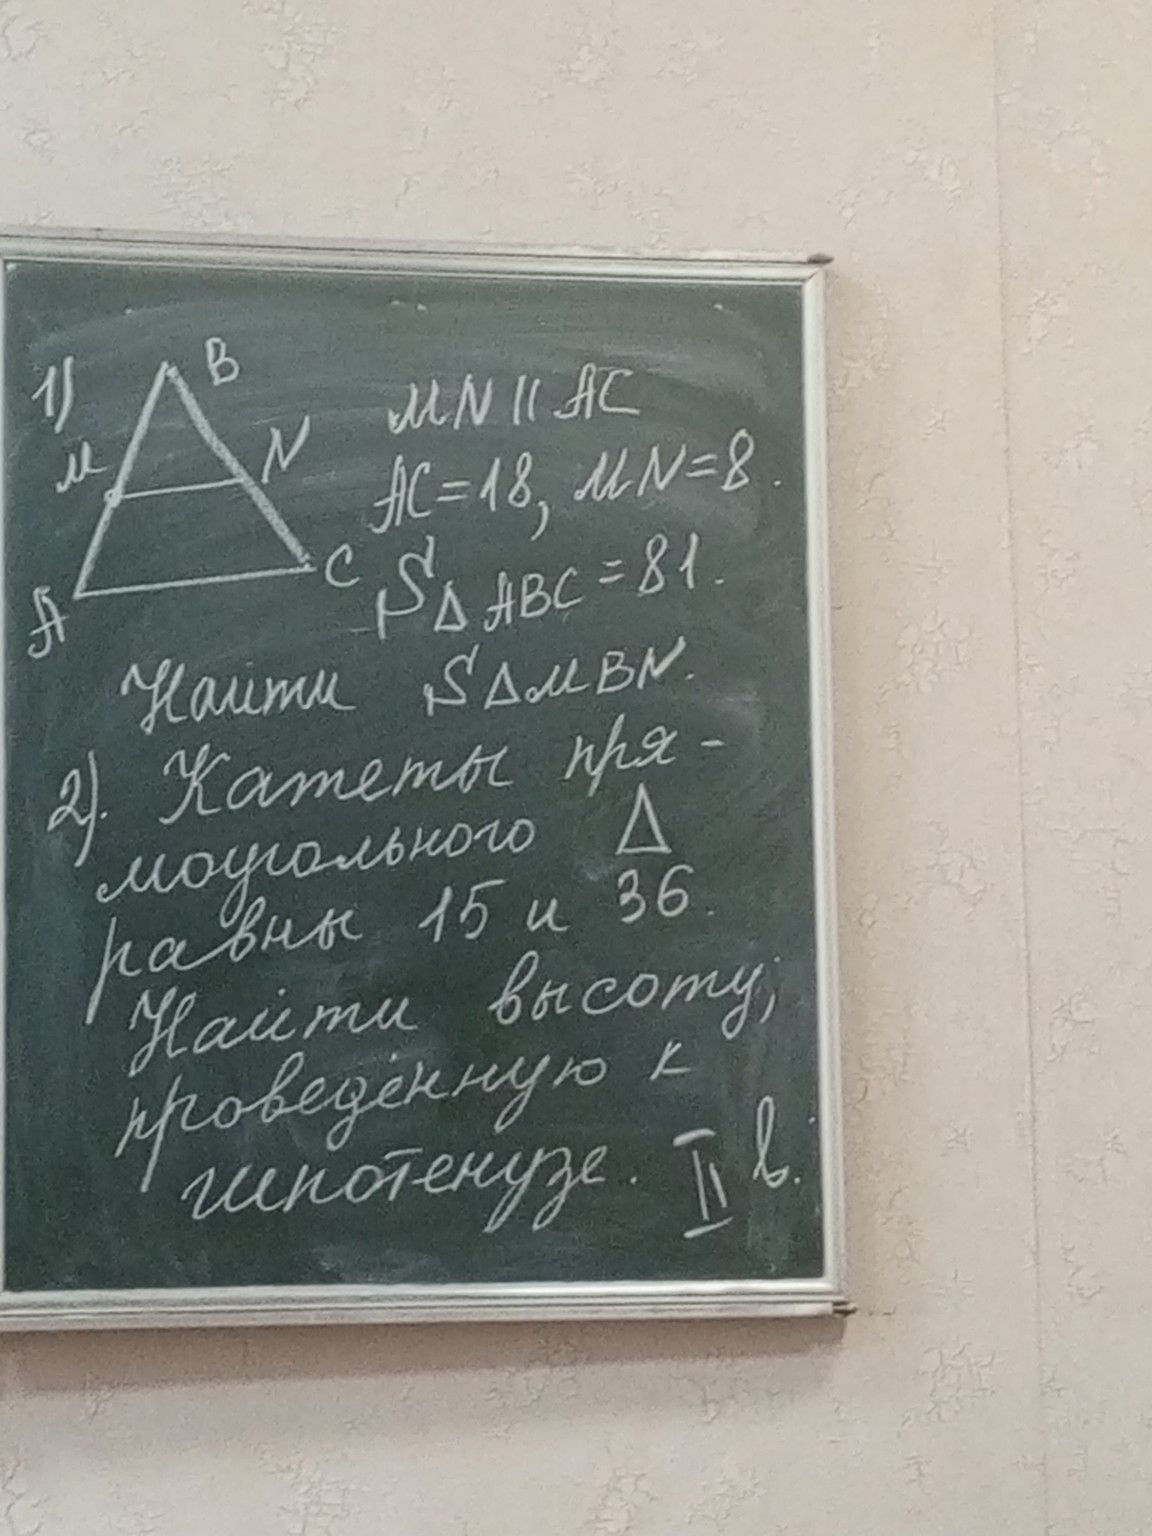 1)
B
M
N
A
C
MN || AC
AC=18, MN=8.
S△ABC=81.
Найти S△MBN.
2). Катеты пря-
моугольного △
равны 15 и 36.
Найти высоту,
проведённую к
гипотенузе. II в.